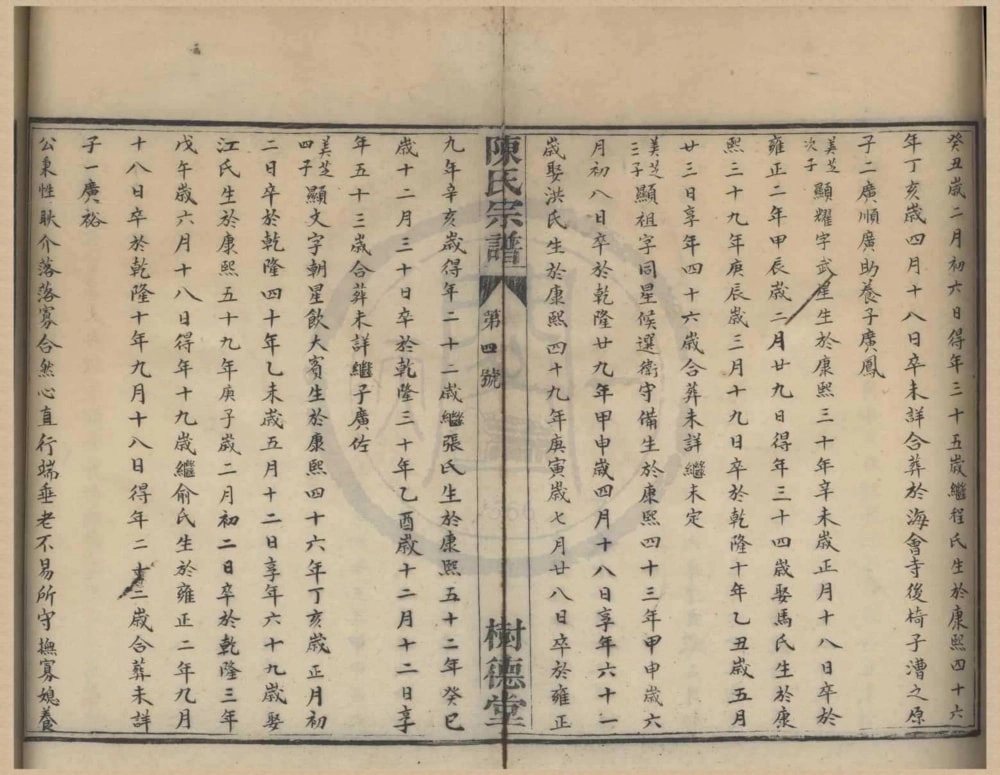 癸丑歲二月初六日得年三十五歲繼程氏生於康熙四十六
年丁亥歲四月十八日卒未詳合葬於海會寺後椅子漕之原
子二廣順廣助養子廣鳳
美芝次子顯耀字武星生於康熙三十年辛未歲正月十八日卒於
雍正二年甲辰歲二月廿九日得年三十四歲娶馬氏生於康
熙三十九年庚辰歲三月十九日卒於乾隆十年乙丑歲五月
廿三日享年四十六歲合葬未詳繼未定
美芝三子顯祖字同星候選衛守備生於康熙四十三年甲申歲六
月初八日卒於乾隆廿九年甲申歲四月十八日享年六十一
歲娶洪氏生於康熙四十九年庚寅歲七月廿八日卒於雍正
陳氏宗譜 第四號 樹德堂
九年辛亥歲得年二十二歲繼張氏生於康熙五十二年癸巳
歲十二月三十日卒於乾隆三十年乙酉歲十二月十二日享
年五十三歲合葬未詳繼子廣佐
美芝四子顯文字朝星飲大賓生於康熙四十六年丁亥歲正月初
二日卒於乾隆四十年乙未歲五月十二日享年六十九歲娶
江氏生於康熙五十九年庚子歲二月初二日卒於乾隆三年
戊午歲六月十八日得年十九歲繼俞氏生於雍正二年九月
十八日卒於乾隆十年九月十八日得年二十二歲合葬未詳
子一廣裕
公東性耿介落落寡合然心直行端垂老不易所守撫寡媳養